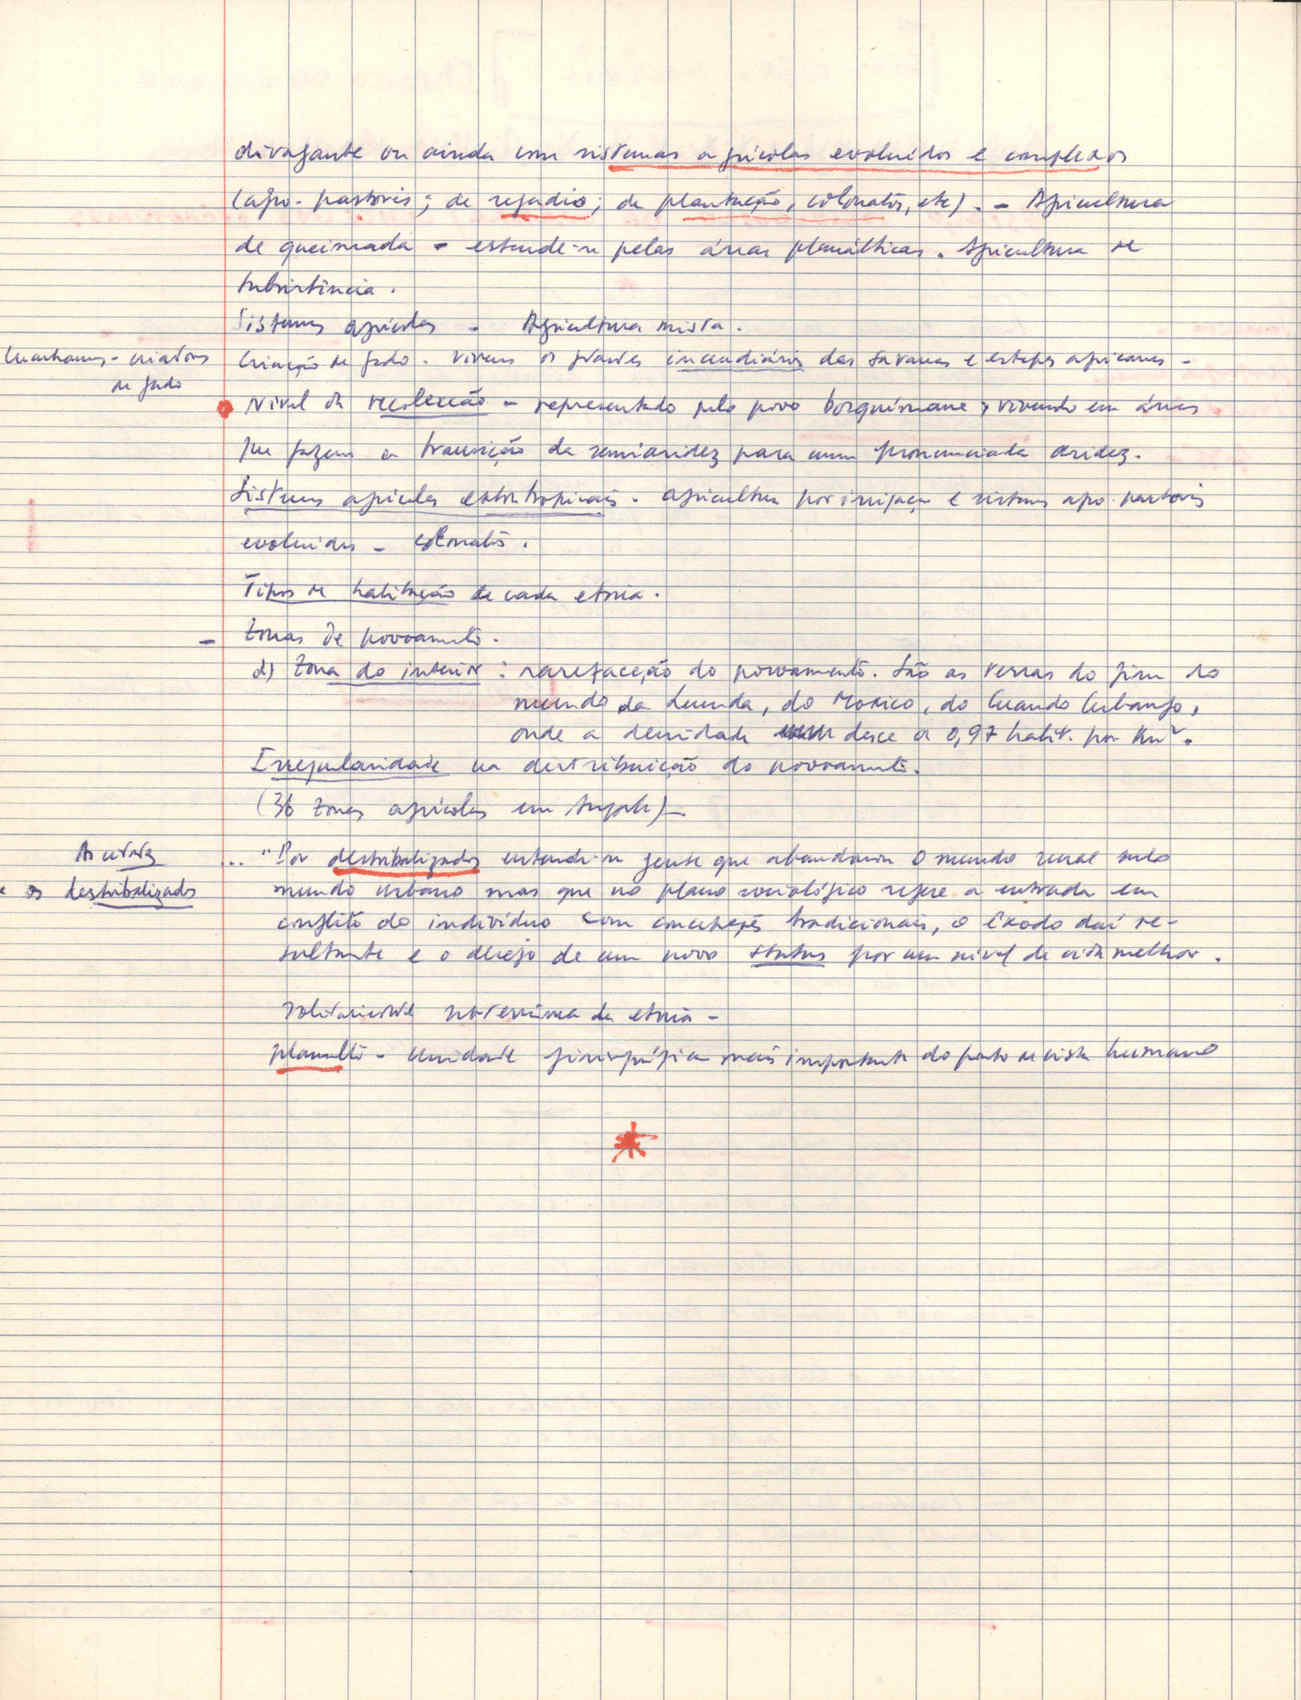 divagante ou ainda com sistemas agrícolas evoluídos e complexos
(agro-pastoris; de regadio; de plantação, colonatos, etc). - Agricultura
de queimada - estende-se pelas áreas planálticas. Agricultura de
subsistência.
Sistemas agrícolas - Agricultura mista.
Cuanhamas - criadores
de gado
Criação de gado. Vivem os grandes incendiários das savanas e estepes africanas -
Nível da recolecção - representado pelo povo bosquímane, vivendo em áreas
que fazem a transição da semiaridez para uma pronunciada aridez.
Sistemas agrícolas extratropicais. agricultura por irrigação e sistemas agro-pastoris
evoluidos - colonatos.
Tipos de habitação de cada etnia.
- Zonas de povoamento.
d) Zona do interior : rarefacção do povoamento. São as terras do fim do
mundo da Lunda, do Moxico, do Cuando Cubango,
onde a densidade desce a 0,97 habit. por Km².
Irregularidade na distribuição do povoamento.
(36 zonas agrícolas em Angola) -
As urbes
e os destribalizados
... "Por destribalizados entende-se gente que abandonou o mundo rural pelo
mundo urbano mas que no plano sociológico refere a entrada em
conflito do indivíduo com concepções tradicionais, o êxodo daí re-
sultante e o desejo de um novo status por um nível de vida melhor.
da etnia -
planalto - unidade mais importante do ponto de vista humano